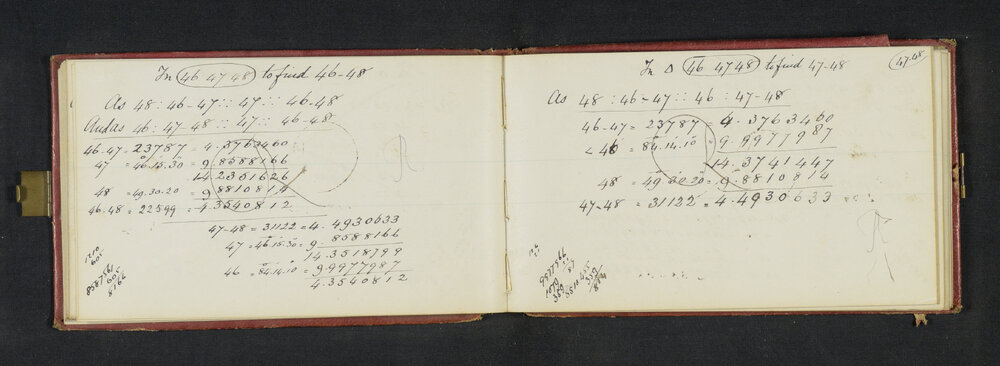 In 46 47 48 to find 46-48
As 48 : 46-47 :: 47 :: 46-48
And as 46 : 47-48 :: 47 :: 46-48
46-47 = 23787 = 4.3763400
47 = 46.15.30 = 9.8588166
14.2351626
48 = 49.30.20 = 9.8810814
46-48 = 22599 = 4.3540812
47-48 = 31122 = 4.4930633
47 = 46.15.30 = 9.8588166
14.3518799
46 = 84.14.10 = 9.9977987
4.3540812
In Δ 46 47 48 to find 47-48
47-48
As 48 : 46-47 :: 46 : 47-48
46-47 = 23787 = 4.3763400
<46 = 84.14.10 = 9.9977987
14.3741447
48 = 49.30.20 = 9.8810814
47-48 = 31122 = 4.4930633